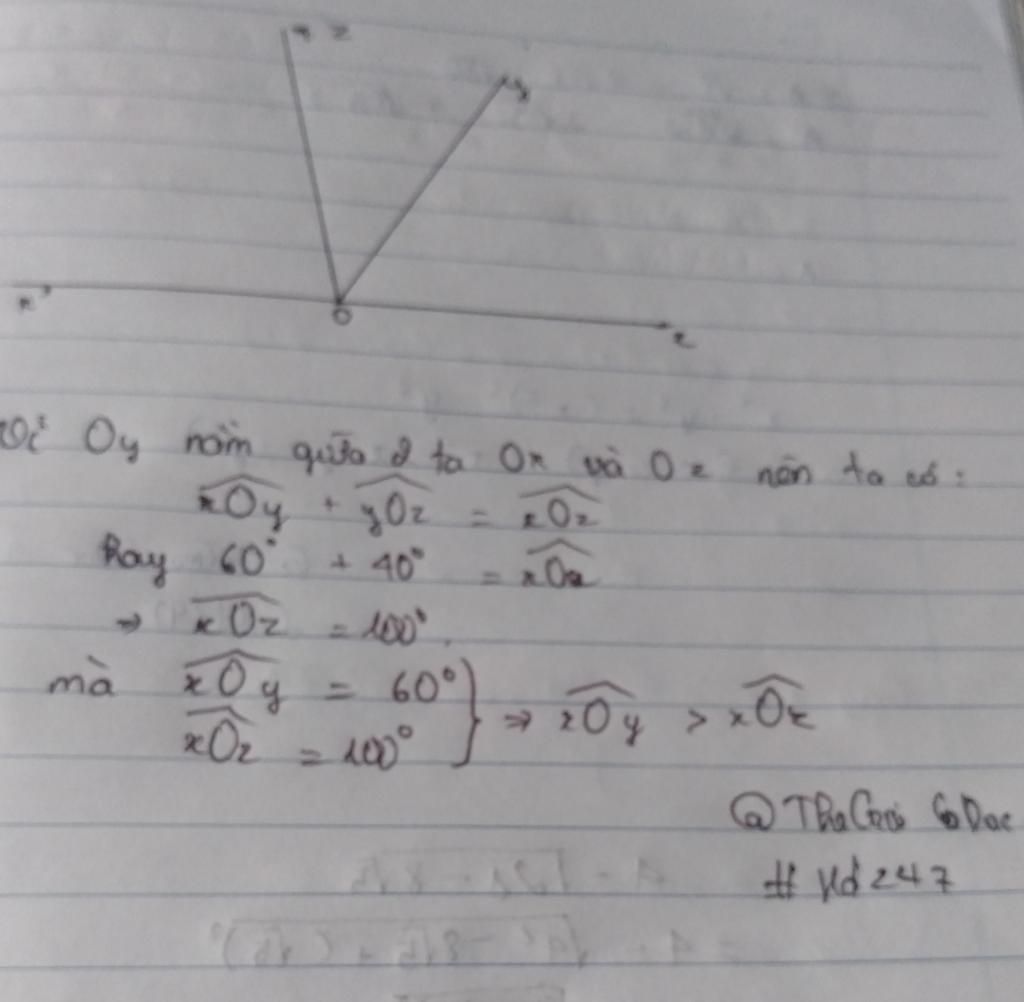 z
y
x'
O
x
Vì Oy nằm giữa 2 ta Ox và Oz nên ta có:
xOy + yOz = xOz
Hay 60° + 40° = xOz
⇒ xOz = 100°.
mà xOy = 60°
xOz = 100° } ⇒ xOy > xOz
# Hd 247